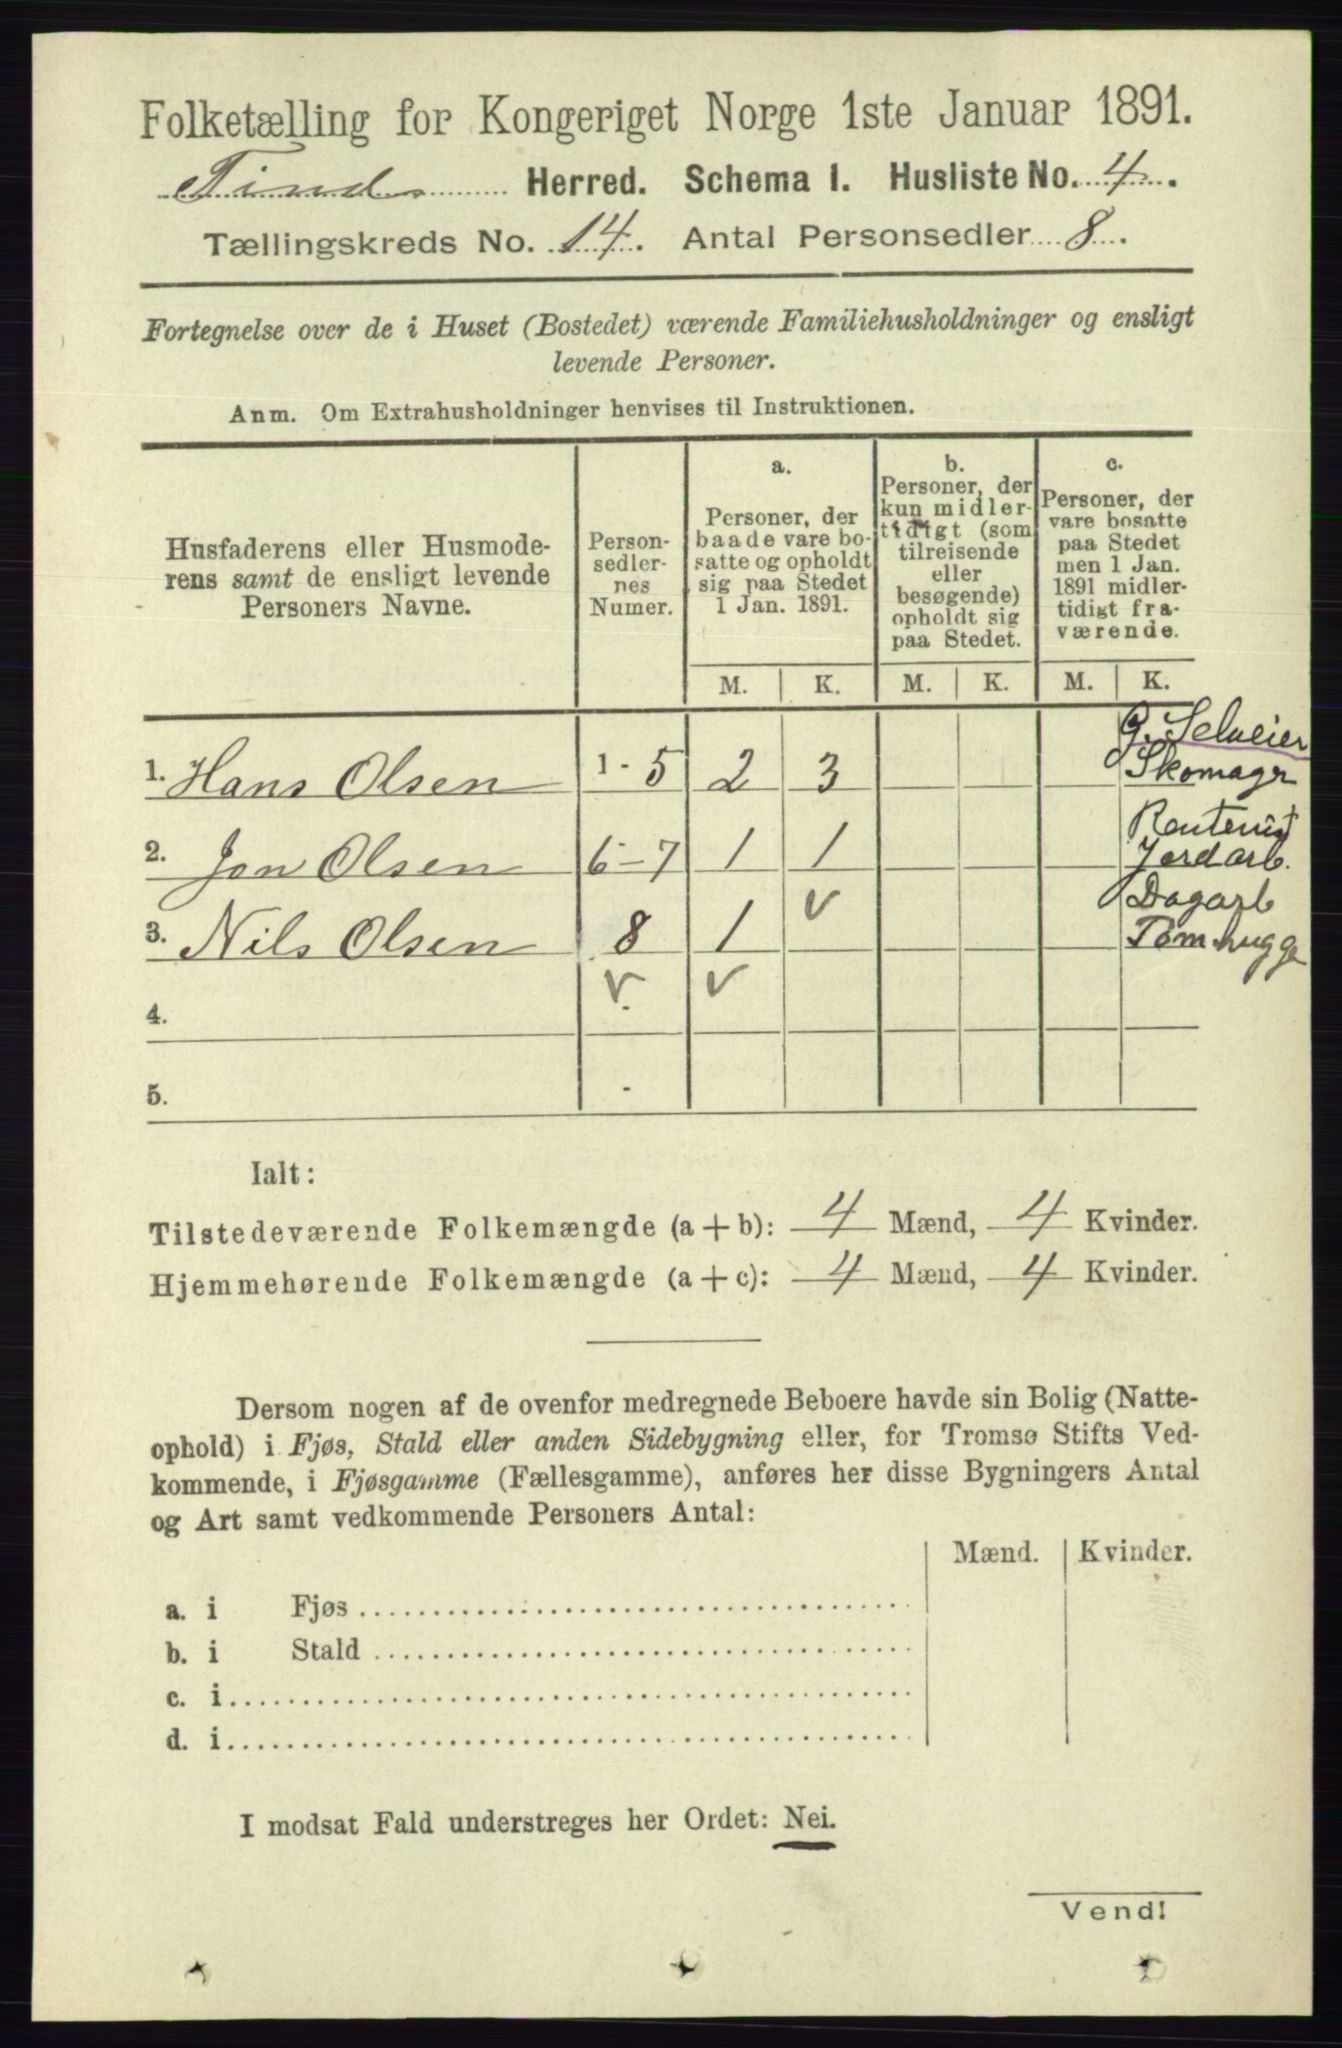 Folketælling for Kongeriget Norge 1ste Januar 1891.
Tinds Herred. Schema I. Husliste No. 4.
Tællingskreds No. 14. Antal Personsedler 8.
Fortegnelse over de i Huset (Bostedet) værende Familiehusholdninger og ensligt
levende Personer.
Anm. Om Extrahusholdninger henvises til Instruktionen.
Husfaderens eller Husmode-
rens samt de ensligt levende
Personers Navne.
Person-
sedler-
nes
Numer.
a.
Personer, der
baade vare bo-
satte og opholdt
sig paa Stedet
1 Jan. 1891.
b.
Personer, der
kun midler-
tidigt (som
tilreisende
eller
besøgende)
opholdt sig
paa Stedet.
c.
Personer, der
vare bosatte
paa Stedet
men 1 Jan.
1891 midler-
tidigt fra-
værende.
M. K. M. K. M. K.
G. Selveier
1. Hans Olsen 1-5 2 3 Skomager
Rentenist
2. Jon Olsen 6-7 1 1 Jordarb.
v Dagarb
3. Nils Olsen 8 1 Tømhugge
v v
4.
5.
Ialt:
Tilstedeværende Folkemængde (a + b): 4 Mænd, 4 Kvinder.
Hjemmehørende Folkemængde (a + c): 4 Mænd, 4 Kvinder.
Dersom nogen af de ovenfor medregnede Beboere havde sin Bolig (Natte-
ophold) i Fjøs, Stald eller anden Sidebygning eller, for Tromsø Stifts Ved-
kommende, i Fjøsgamme (Fællesgamme), anføres her disse Bygningers Antal
og Art samt vedkommende Personers Antal:
Mænd. Kvinder.
a. i Fjøs
b. i Stald
c. i
d. i
I modsat Fald understreges her Ordet: Nei.
Vend!